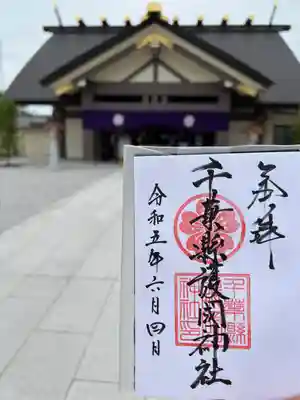 奉拝
千葉縣護国神社
令和五年六月四日
千葉縣
護國神
社之印